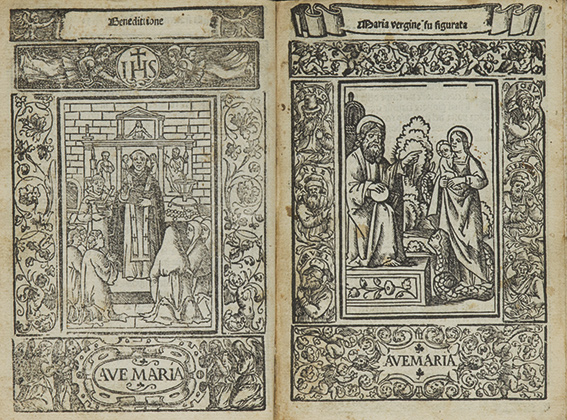 Benedictione
IHS
AVE MARIA
Maria vergine fu figurata
AVEMARIA